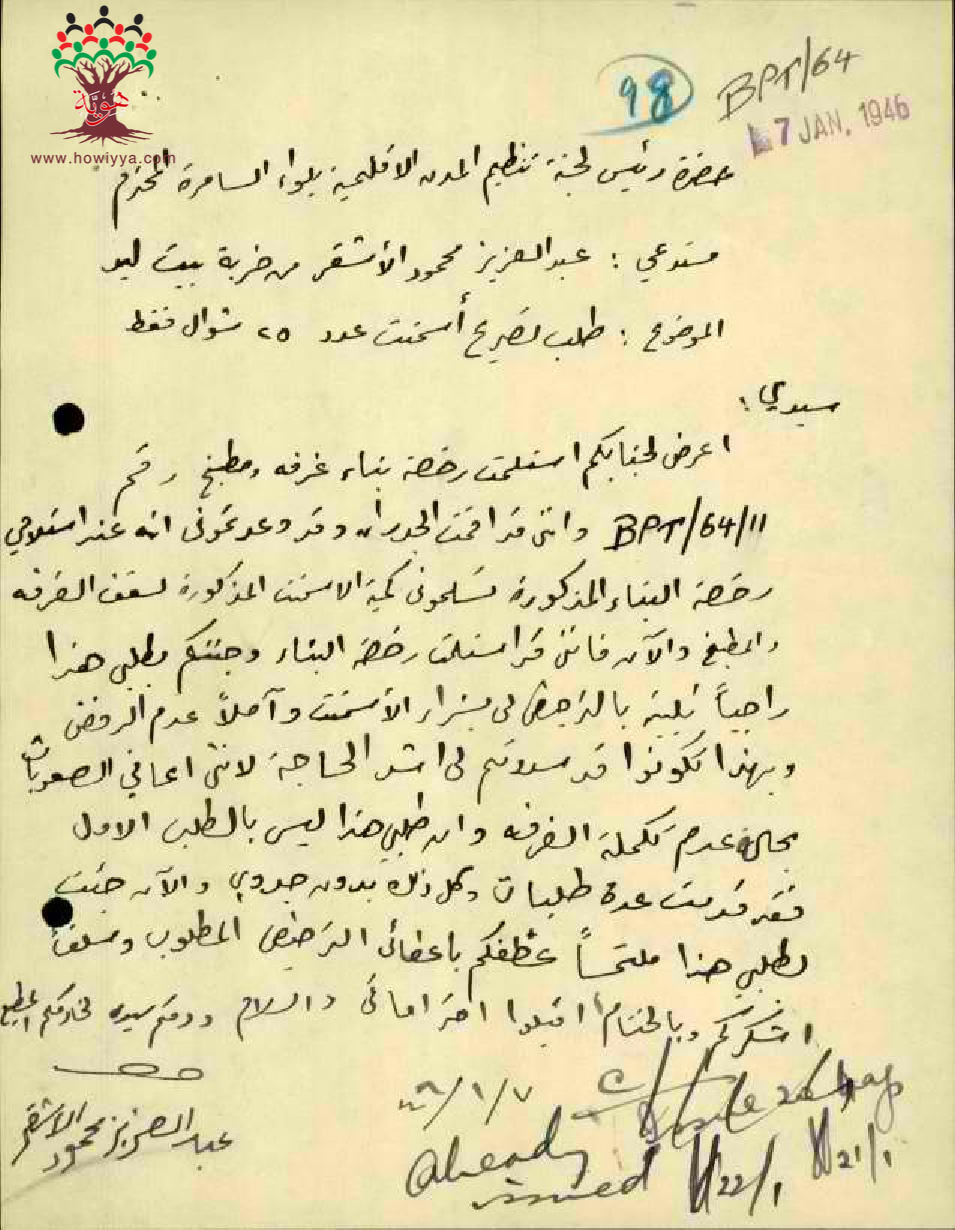 هوية
www.howiyya.com
98
BPT/64
7 JAN. 1946
حضرة رئيس لجنة تنظيم المدن الاقليمية بلواء السامرة المحترم
مستدعي : عبد العزيز محمود الأشقر من خربة بيت ليد
الموضوع : طلب تصريح أسمنت عدد ٢٥ شوال فقط
سيدي :
اعرض لجنابكم استلمت رخصة بناء غرفه ومطبخ رقم
BPT/64/11 وانني قد اقمت الجدران وقد وعدتموني انه عند استلامي
رخصة البناء المذكورة تسلموني كمية الاسمنت المذكورة لسقف الغرفه
والمطبخ والآن فانني قد استلمت رخصة البناء وجئتكم بطلبي هذا
راجياً تلبيته بالترخيص لي بشراء الأسمنت وآملاً عدم الرفض
وبهذا تكونوا قد لي اشد الحاجة لانني اعاني الصعوبات
بحالة عدم تكملة الغرفه وان طلبي هذا ليس بالطلب الاول
فقد قدمت عدة طلبات وكل ذلك بدون جدوى والآن جئت
بطلبي هذا ملتمساً عطفكم باعطائي الترخيص المطلوب وسلفاً
اشكركم وبالختام اقبلوا احتراماتي والسلام ودمتم سيدي لخادمكم المطيع
٤٦/١/٧
عبد العزيز محمود الأشقر
Already
issued
22/1
21/1